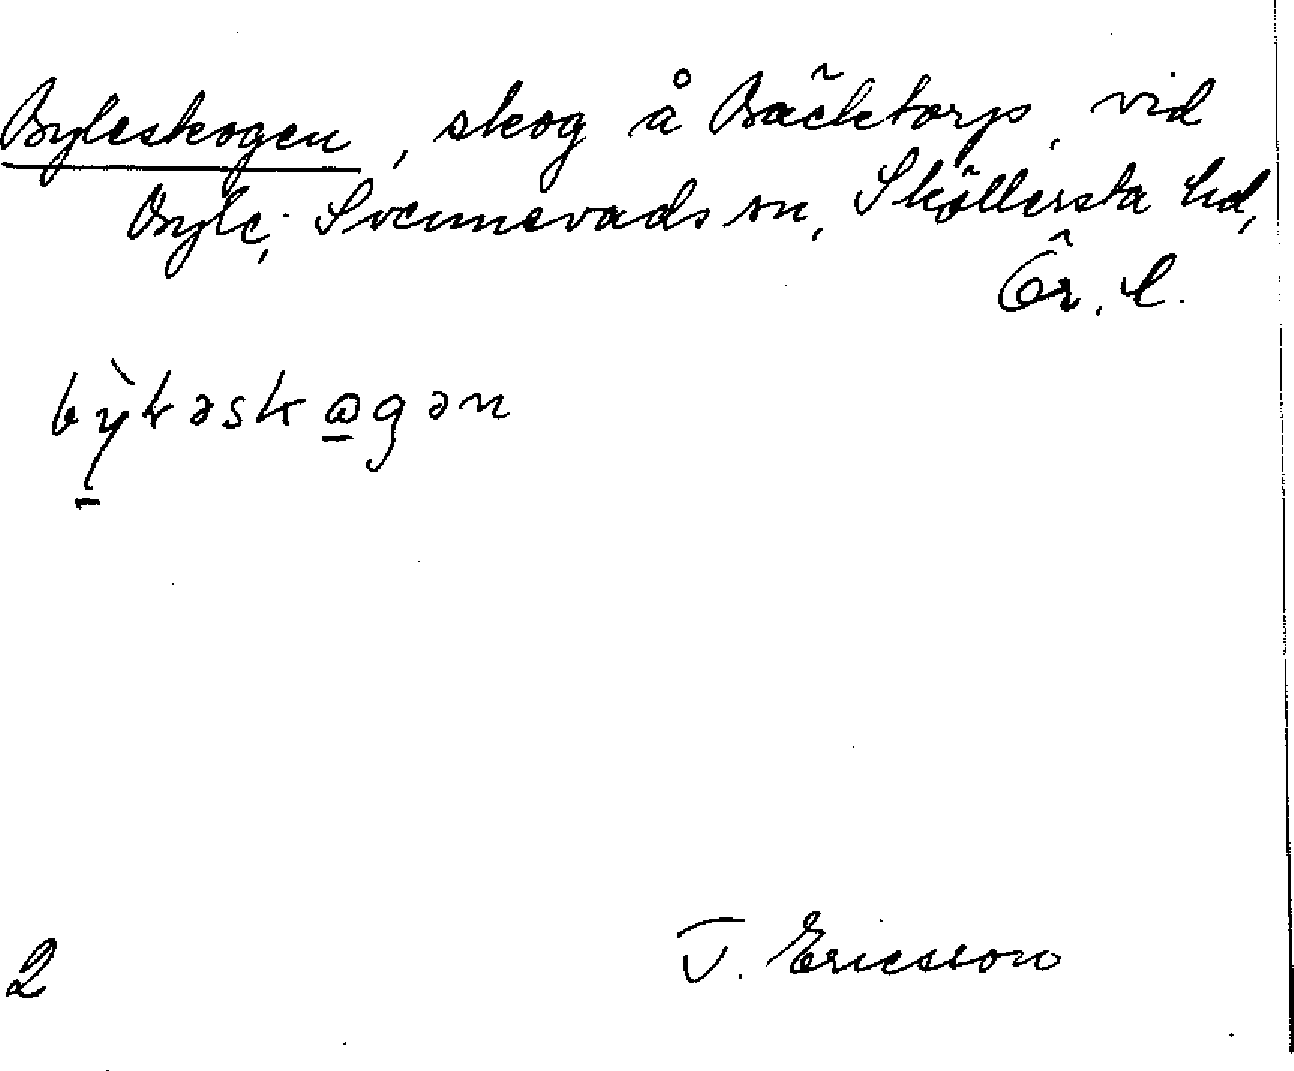 Byleskogen, skog å Bäcktorp, vid
Byle; Svennevads sn, Sköllersta hd,
Ör. l.
bỳ̠ɬəskɷ̠gən
2
T. Ericsson